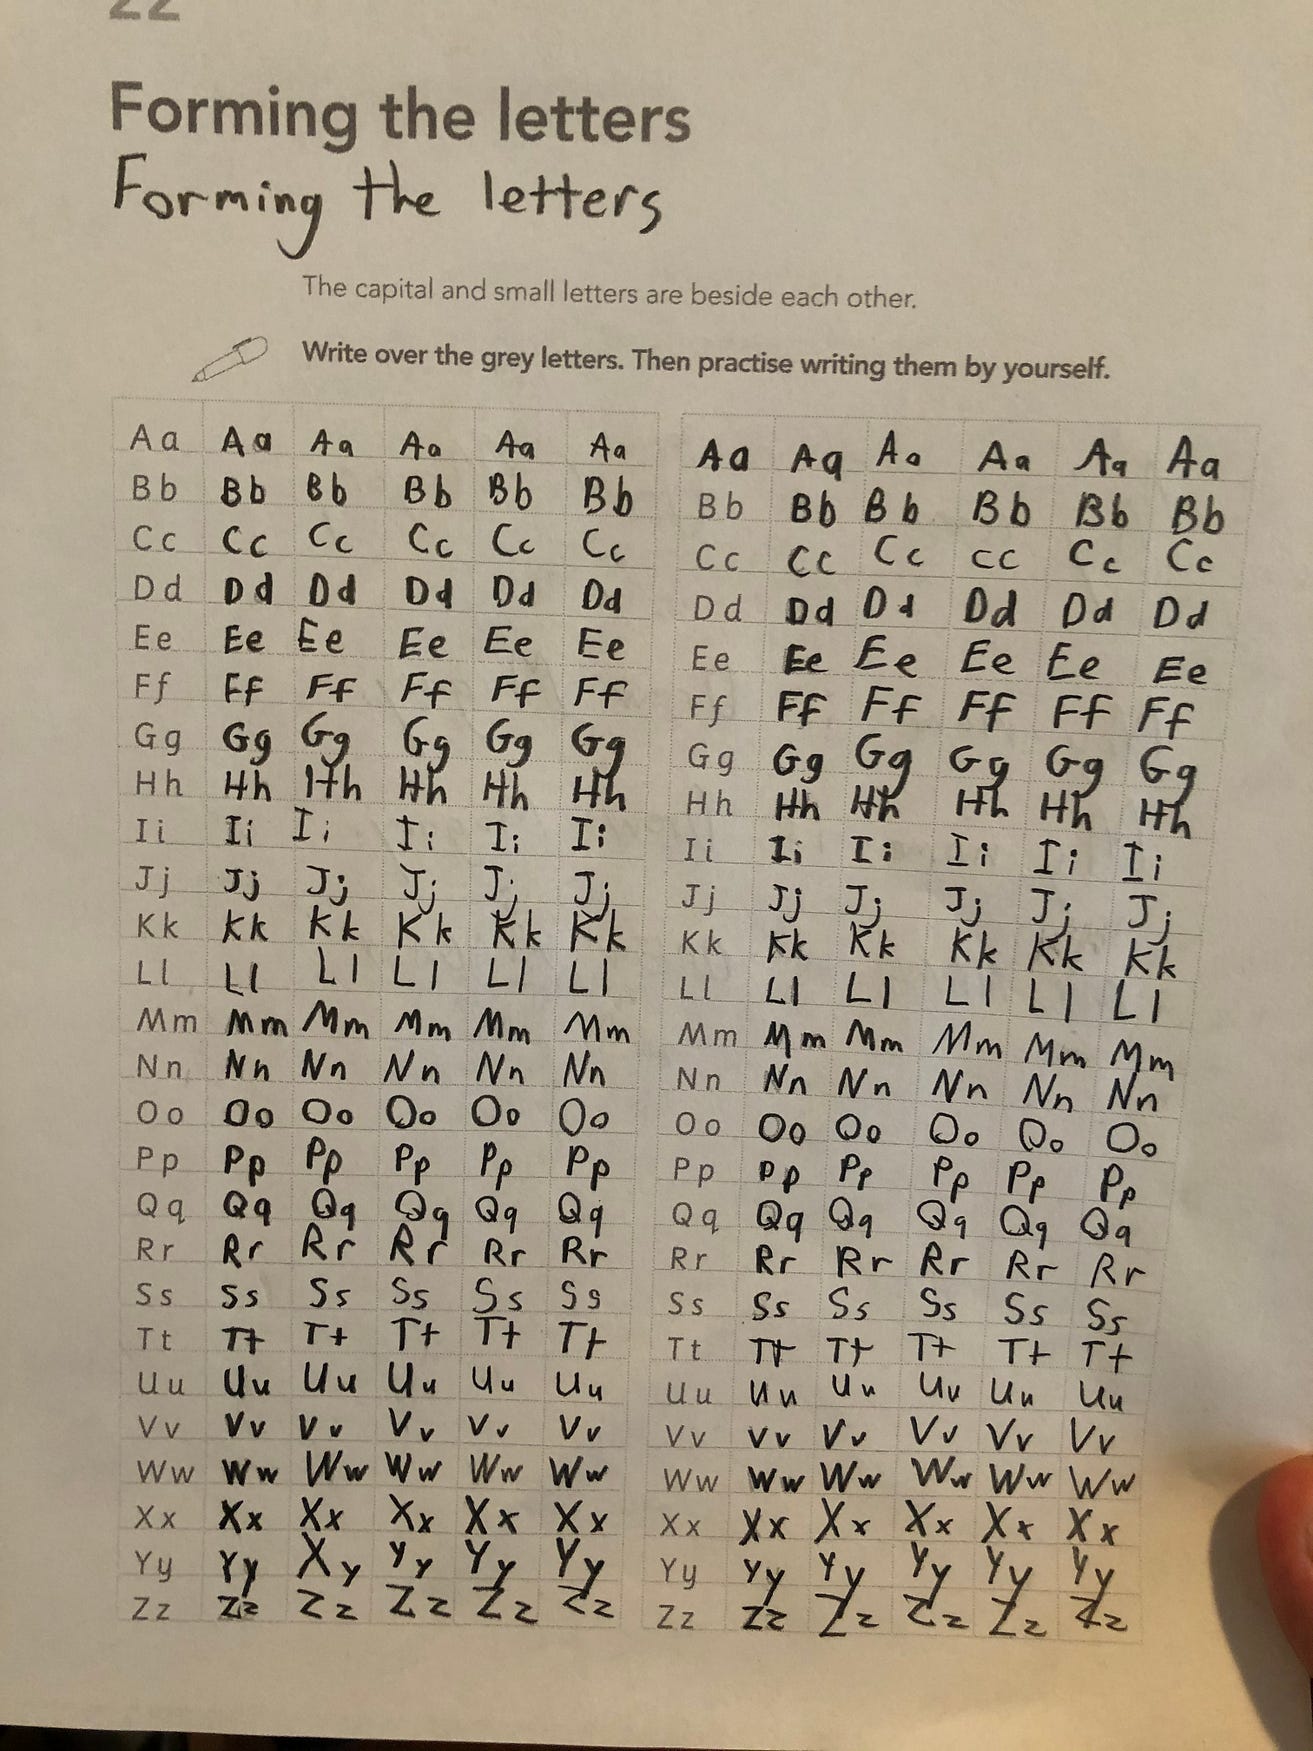 22
Forming the letters
Forming the letters
The capital and small letters are beside each other.
Write over the grey letters. Then practise writing them by yourself.
Aa Aa Aa Aa Aa Aa Aa Aa Aa Aa Aa Aa
Bb Bb Bb Bb Bb Bb Bb Bb Bb Bb Bb Bb
Cc Cc Cc Cc Cc Cc Cc Cc Cc cc Cc Cc
Dd Dd Dd Dd Dd Dd Dd Dd Dd Dd Dd Dd
Ee Ee Ee Ee Ee Ee Ee Ee Ee Ee Ee Ee
Ff Ff Ff Ff Ff Ff Ff Ff Ff Ff Ff Ff
Gg Gg Gg Gg Gg Gg Gg Gg Gg Gg Gg Gg
Hh Hh Hh Hh Hh Hh Hh Hh Hh Hh Hh Hh
Ii Ii Ii Ii Ii Ii Ii Ii Ii Ii Ii Ii
Jj Jj Jj Jj Jj Jj Jj Jj Jj Jj Jj Jj
Kk Kk Kk Kk Kk Kk Kk Kk Kk Kk Kk Kk
Ll Ll Ll Ll Ll Ll Ll Ll Ll Ll Ll Ll
Mm Mm Mm Mm Mm Mm Mm Mm Mm Mm Mm Mm
Nn Nn Nn Nn Nn Nn Nn Nn Nn Nn Nn Nn
Oo Oo Oo Oo Oo Oo Oo Oo Oo Oo Oo Oo
Pp Pp Pp Pp Pp Pp Pp Pp Pp Pp Pp Pp
Qq Qq Qq Qq Qq Qq Qq Qq Qq Qq Qq Qq
Rr Rr Rr Rr Rr Rr Rr Rr Rr Rr Rr Rr
Ss Ss Ss Ss Ss Ss Ss Ss Ss Ss Ss Ss
Tt Tt Tt Tt Tt Tt Tt Tt Tt Tt Tt Tt
Uu Uu Uu Uu Uu Uu Uu Uu Uu Uu Uu Uu
Vv Vv Vv Vv Vv Vv Vv Vv Vv Vv Vv Vv
Ww Ww Ww Ww Ww Ww Ww Ww Ww Ww Ww Ww
Xx Xx Xx Xx Xx Xx Xx Xx Xx Xx Xx Xx
Yy Yy Xy Yy Yy Yy Yy Yy Yy Yy Yy Yy
Zz Zz Zz Zz Zz Zz Zz Zz Zz Zz Zz Zz